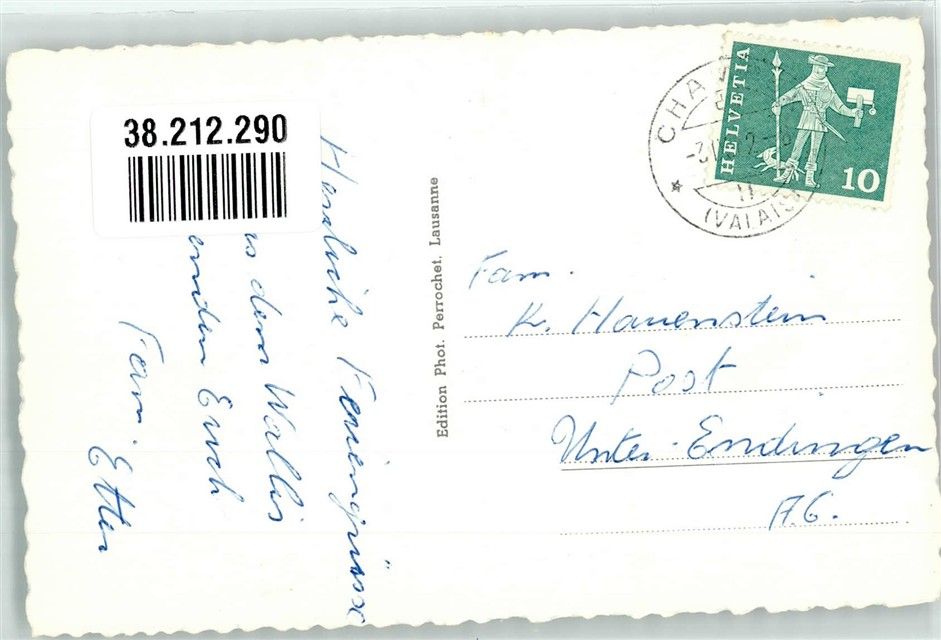 38.212.290
Herzliche Feriengrüsse
dem Wallis
senden Euch
Fam. Etter
Edition Phot. Perrochet, Lausanne
HELVETIA
10
(VALAIS)
Fam.
K. Hauenstein
Post
Unter-Endingen
A.G.